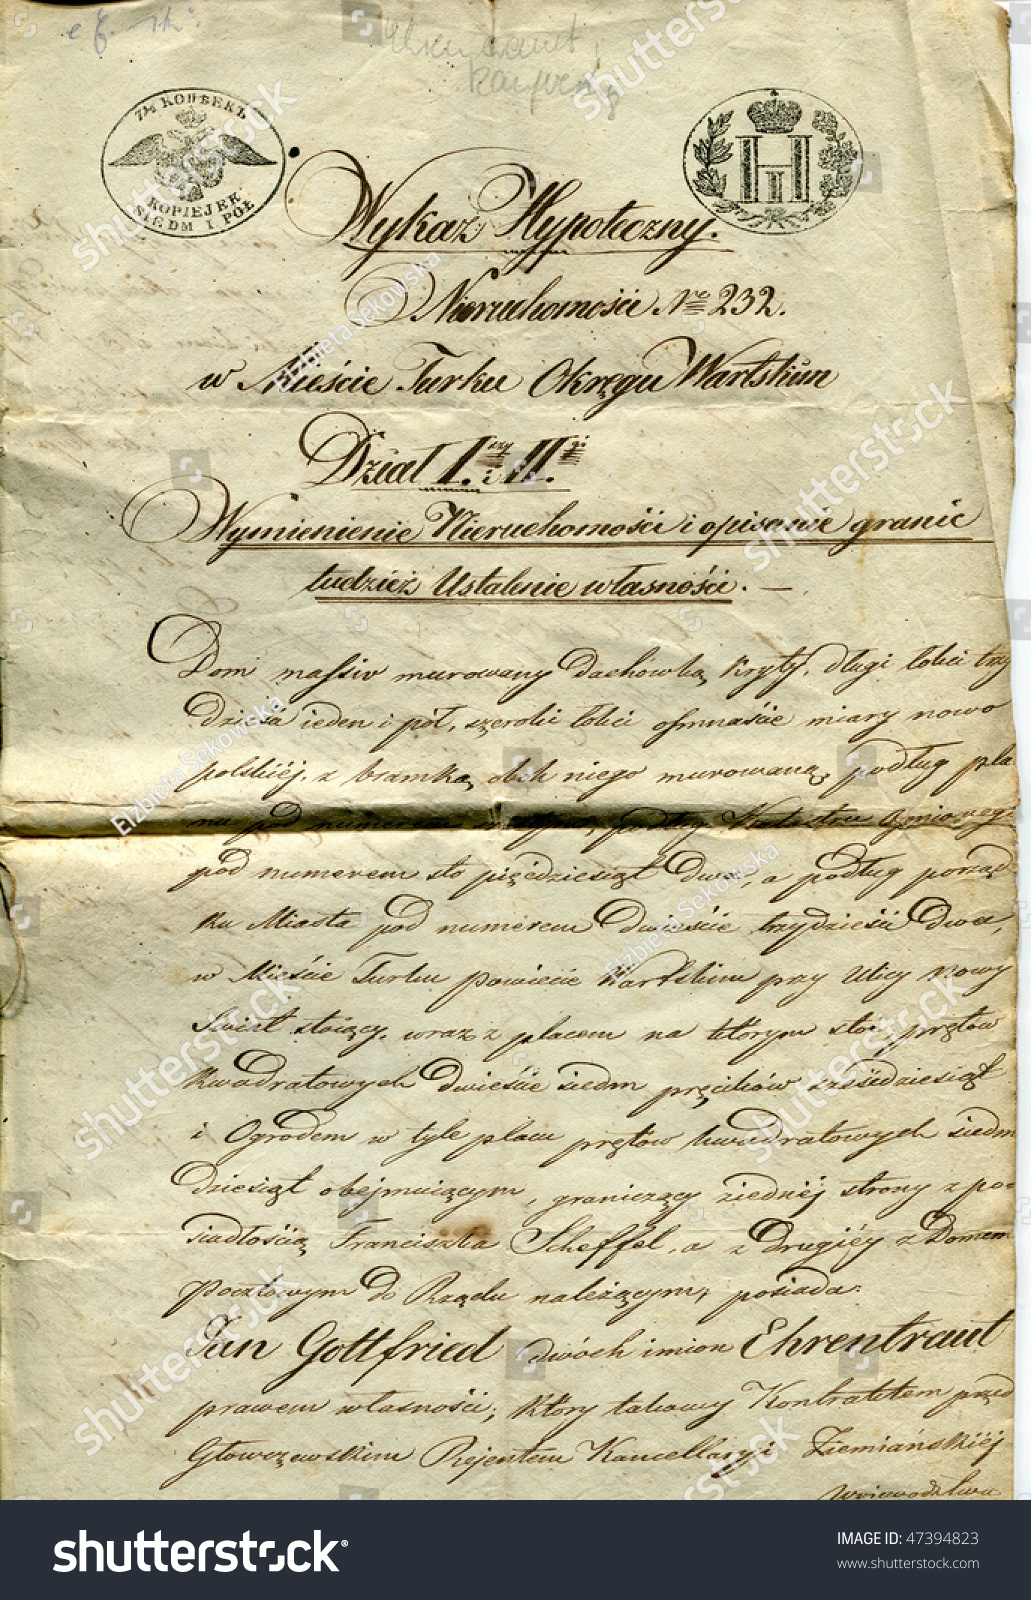 7½ КОПѢЕКЪ
KOPIEJEK
SIEDM I PÓŁ
H I
Wykaz Hypoteczny.
Nieruchomości No 232.
w Mieście Turku Okręgu Wartskim
Dział I.szy i II.gi
Wymienienie Nieruchomości i opisanie granic
tudzież Ustalenie własności. —
Dom massiv murowany Dachówką kryty, długi łokci trzy
dzieści ieden i pół, szeroki łokci osmnaście miary nowo
polskiéj, z bramką obok niego murowaną, podług pla
nu pod numerem podług Katastru Ogniowego
pod numerem sto pięćdziesiąt dwa, a podług porząd
ku Miasta pod numerem dwieście trzydzieści dwa,
w Mieście Turku powiecie Wartskim przy Ulicy Nowy
Świat stoiący, wraz z placem na którym stoi, prętów
kwadratowych dwieście siedm pręcików sześćdziesiąt
i Ogrodem w tyle placu prętów kwadratowych siedm
dziesiąt obejmuiącym, graniczący ziednéj strony z po-
siadłością Franciszka Scheffel, a z drugiéy z Domem
Pocztowym do Rządu należącym, posiada:
Jan Gottfried dwóch imion Ehrentraut
prawem własności; który takowy Kontraktem przed
Głowczewskim Rejentem Kancellaryi Ziemiańskiéj
Woiewodztwa
shutterstock
Elzbieta Sekowska
shutterstock
IMAGE ID: 47394823
www.shutterstock.com